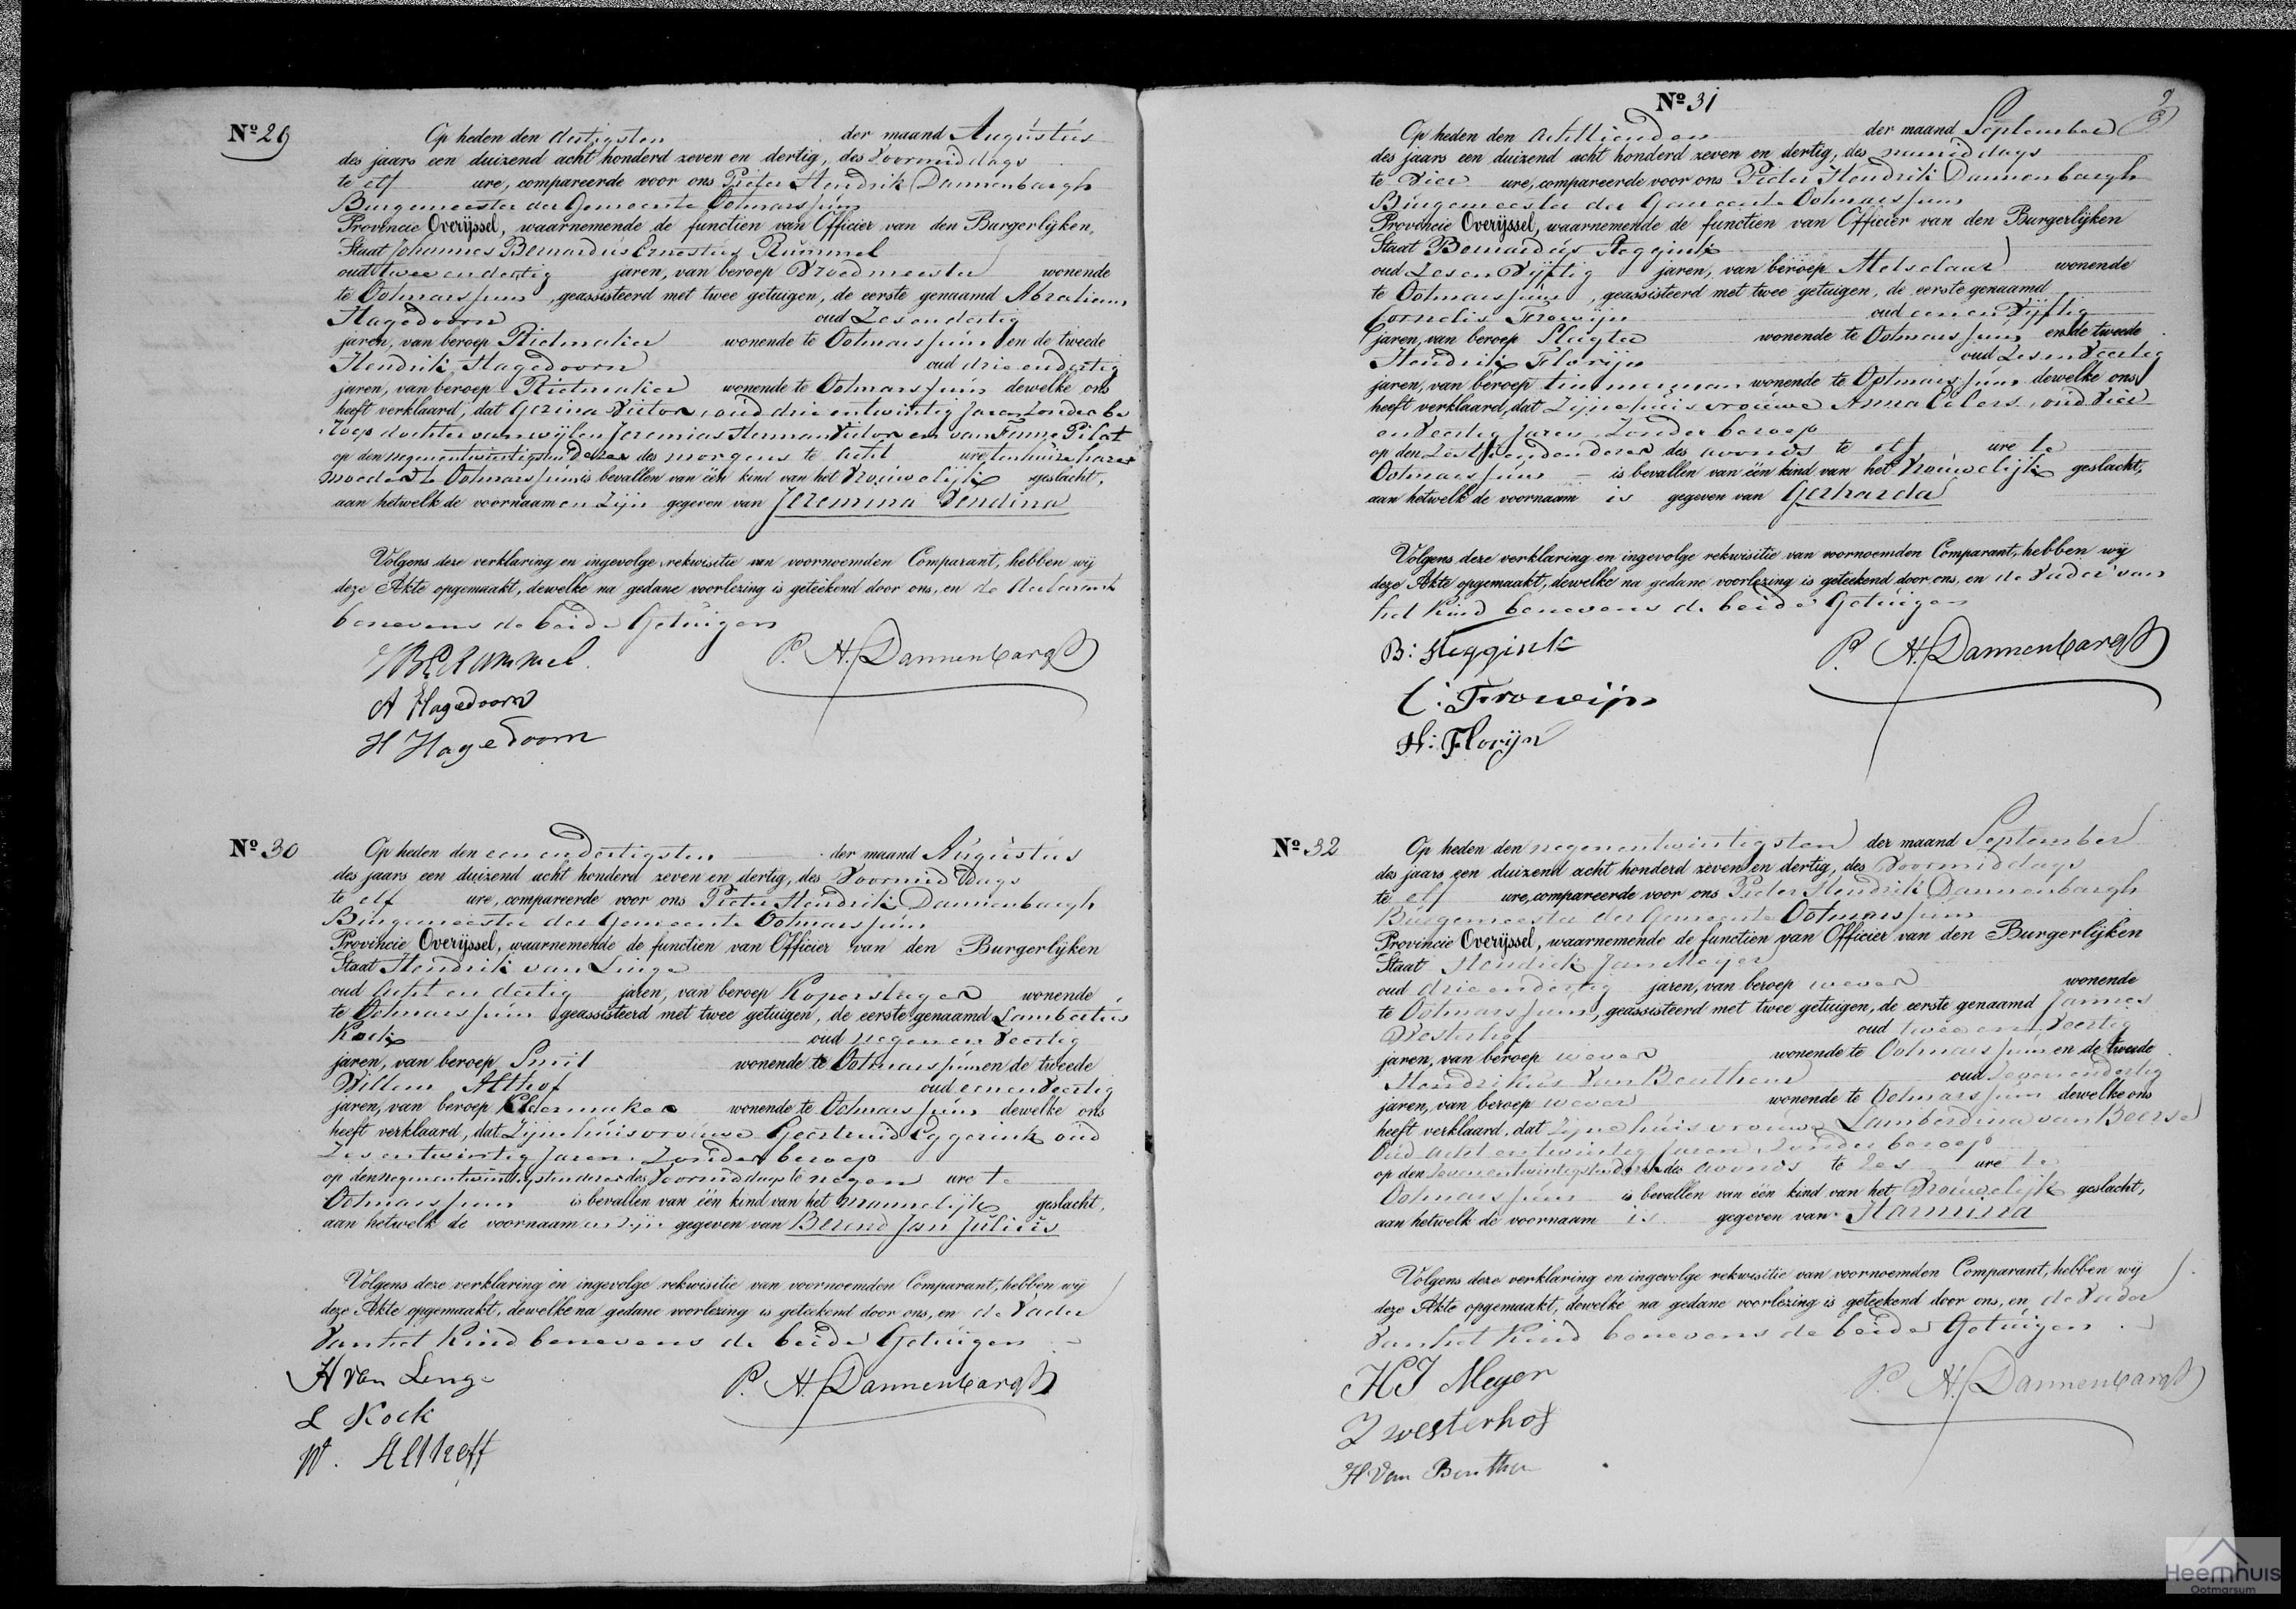 Nº 29
Op heden den dertigsten der maand Augustus
des jaars een duizend acht honderd zeven en dertig, des Voormiddags
te elf ure, compareerde voor ons Pieter Hendrik Dannenbargh
Burgemeester der Gemeente Ootmarssum
Provincie Overijssel, waarnemende de functien van Officier van den Burgerlijken
Staat Johannes Bernardus Ernestus Rummel
oud twee en dertig jaren, van beroep Vroedmeester wonende
te Ootmarssum, geassisteerd met twee getuigen, de eerste genaamd Abraham
Hagedoorn oud Zes en dertig
jaren, van beroep Rietmaker wonende te Ootmarssum en de tweede
Hendrik Hagedoorn oud drie en dertig
jaren, van beroep Rietmaker wonende te Ootmarssum dewelke ons
heeft verklaard, dat Gezina Victor, oud drie entwintig Jaren Zonder be
roep dochter van wijlen Jeremias Herman Victor en van Fenne Pilat
op den negenentwintigsten dezer des morgens te acht ure, ten huize harer
moeder te Ootmarssum is bevallen van één kind van het Vrouwelijk geslacht,
aan hetwelk de voornaamen zijn gegeven van Jeremina Dendina
Volgens deze verklaring en ingevolge rekwisitie van voornoemden Comparant, hebben wij
deze Akte opgemaakt, dewelke na gedane voorlezing is geteekend door ons, en de
benevens de beide Getuigen
JBERummel P. H. Dannenbargh
A Hagedoorn
H Hagedoorn
Nº 30
Op heden den een en dertigsten der maand Augustus
des jaars een duizend acht honderd zeven en dertig, des Voormiddags
te elf ure, compareerde voor ons Pieter Hendrik Dannenbargh
Burgemeester der Gemeente Ootmarssum
Provincie Overijssel, waarnemende de functien van Officier van den Burgerlijken
Staat Hendrik van Linge
oud acht en dertig jaren, van beroep Koperslager wonende
te Ootmarssum geassisteerd met twee getuigen, de eerste genaamd Lambertus
Kock oud negen en Veertig
jaren, van beroep Smit wonende te Ootmarssum en de tweede
Willem Althof oud een en Veertig
jaren, van beroep Kleermaker wonende te Ootmarssum dewelke ons
heeft verklaard, dat Zijne huisvrouwe Geertruid Eggerink oud
Zes entwintig Jaren Zonder beroep
op den negenentwintigsten dezer des Voormiddags te negen ure te
Ootmarssum is bevallen van één kind van het mannelijk geslacht,
aan hetwelk de voornaamen zijn gegeven van Berend Jan Julius
Volgens deze verklaring en ingevolge rekwisitie van voornoemden Comparant, hebben wij
deze Akte opgemaakt, dewelke na gedane voorlezing is geteekend door ons, en de Vader
van het Kind benevens de beide Getuigen
H van Linge P. H. Dannenbargh
L Kock
W. Althoff
Nº 31
Op heden den achttienden der maand September
des jaars een duizend acht honderd zeven en dertig, des namiddags
te Vier ure, compareerde voor ons Pieter Hendrik Dannenbargh
Burgemeester der Gemeente Ootmarssum
Provincie Overijssel, waarnemende de functien van Officier van den Burgerlijken
Staat Bernardus Heggink
oud Zes en Vijftig jaren, van beroep Metselaar wonende
te Ootmarssum, geassisteerd met twee getuigen, de eerste genaamd
Cornelis Frowijn oud een en Vijftig
jaren, van beroep Slagter wonende te Ootmarssum en de tweede
Hendrik Florijn oud Zes en Veertig
jaren, van beroep timmerman wonende te Ootmarssum dewelke ons
heeft verklaard, dat Zijne huisvrouwe Anna Eilers, oud Vier
en Veertig Jaren Zonder beroep
op den Zestienden dezer des avonds te elf ure te
Ootmarssum is bevallen van één kind van het Vrouwelijk geslacht,
aan hetwelk de voornaam is gegeven van Gerharda
Volgens deze verklaring en ingevolge rekwisitie van voornoemden Comparant, hebben wij
deze Akte opgemaakt, dewelke na gedane voorlezing is geteekend door ons, en de Vader van
het Kind benevens de beide Getuigen
B: Heggink P. H. Dannenbargh
C: Frowijn
H: Florijn
Nº 32
Op heden den negenentwintigsten der maand September
des jaars een duizend acht honderd zeven en dertig, des Voormiddags
te elf ure, compareerde voor ons Pieter Hendrik Dannenbargh
Burgemeester der Gemeente Ootmarssum
Provincie Overijssel, waarnemende de functien van Officier van den Burgerlijken
Staat Hendrik Jan Meijer
oud drie en dertig jaren, van beroep wever wonende
te Ootmarssum, geassisteerd met twee getuigen, de eerste genaamd Jannes
Westerhof oud twee en Veertig
jaren, van beroep wever wonende te Ootmarssum en de tweede
Hendrikus van Benthem oud Zeven en dertig
jaren, van beroep wever wonende te Ootmarssum dewelke ons
heeft verklaard, dat Zijne huisvrouwe Lamberdina van Beerse
Oud acht entwintig Jaren Zonder beroep
op den Zevenentwintigsten dezer des avonds te Zes ure te
Ootmarssum is bevallen van één kind van het Vrouwelijk geslacht,
aan hetwelk de voornaam is gegeven van Harmina
Volgens deze verklaring en ingevolge rekwisitie van voornoemden Comparant, hebben wij
deze Akte opgemaakt, dewelke na gedane voorlezing is geteekend door ons, en de Vader
van het Kind benevens de beide Getuigen
HJ Meyer P. H. Dannenbargh
J westerhof
H. van Benthem
Heemhuis
Ootmarsum